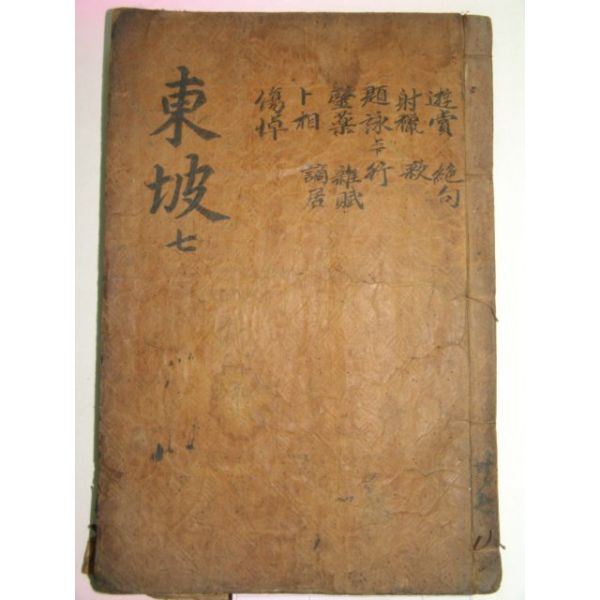 東坡 七
遊賞 絕句
射獵 歌
題詠 行
醫藥 雜賦
卜相 謫居
傷悼